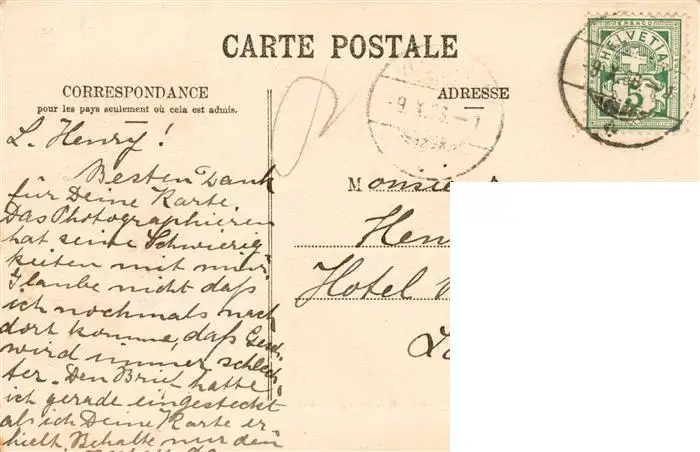 CARTE POSTALE
CORRESPONDANCE
pour les pays seulement où cela est admis.
ADRESSE
FRANCO
HELVETIA
5
-9.X.
-9.X.06.-1
L. Henry!
Besten Dank
für Deine Karte.
Das Photographieren
hat seine Schwierig
keiten mit mir.
Glaube nicht daß
ich nochmals nach
dort komme, daß Gesch.
wird immer schlech-
ter. Den Brief hatte
ich gerade eingesteckt
als ich Deine Karte er-
hielt. Behalte nur den
Monsieu
Hen
Hotel